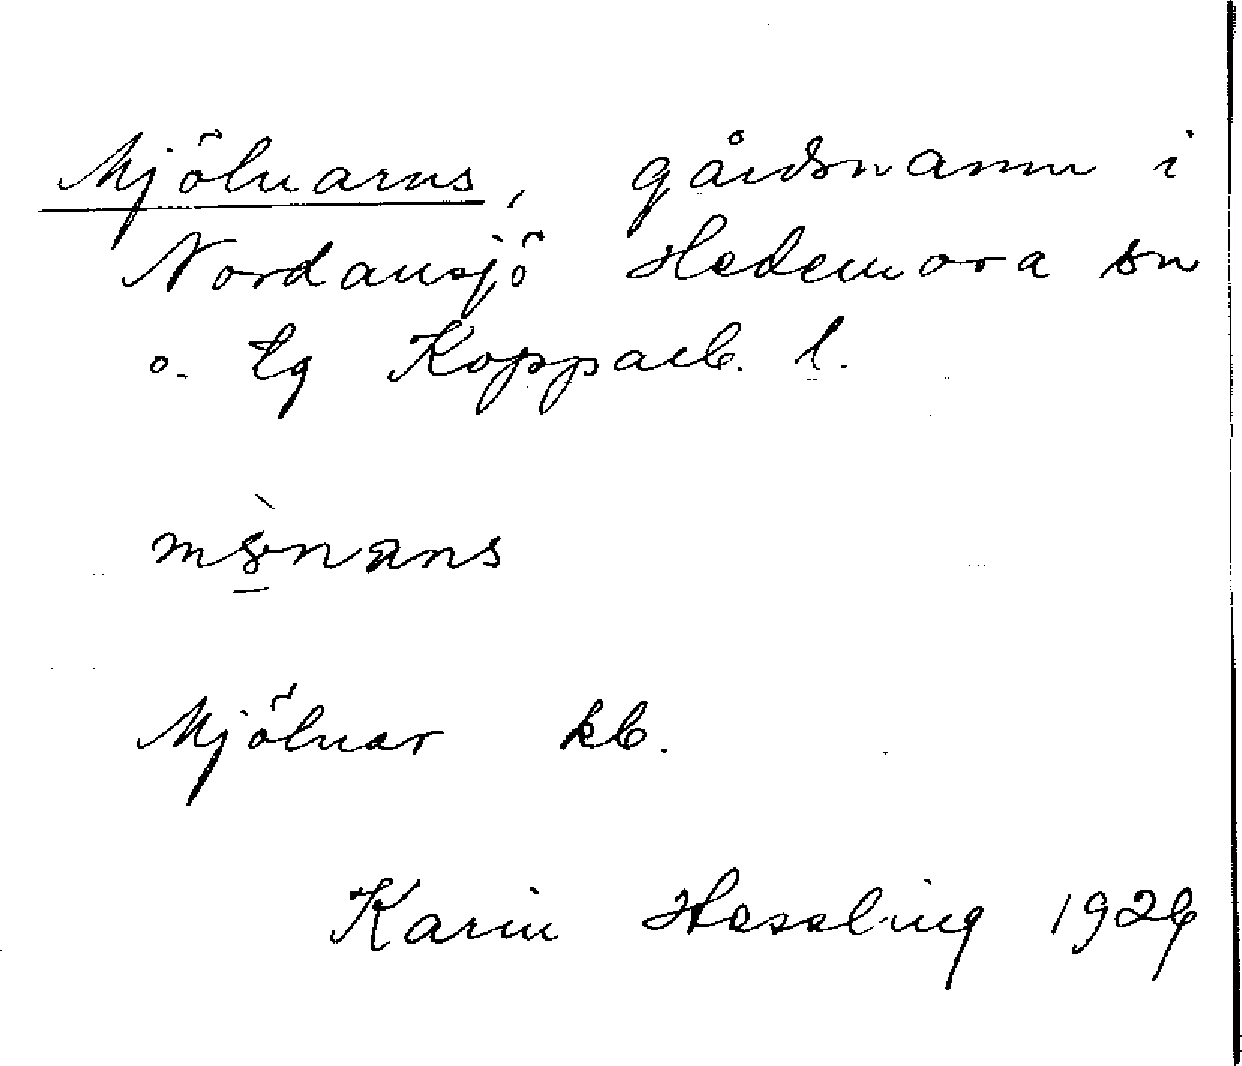 Mjölnarns, gårdsnamn i
Nordansjö Hedemora sn
o. tg Kopparb. l.
Mjölnar kb.
Karin Hessling 1926